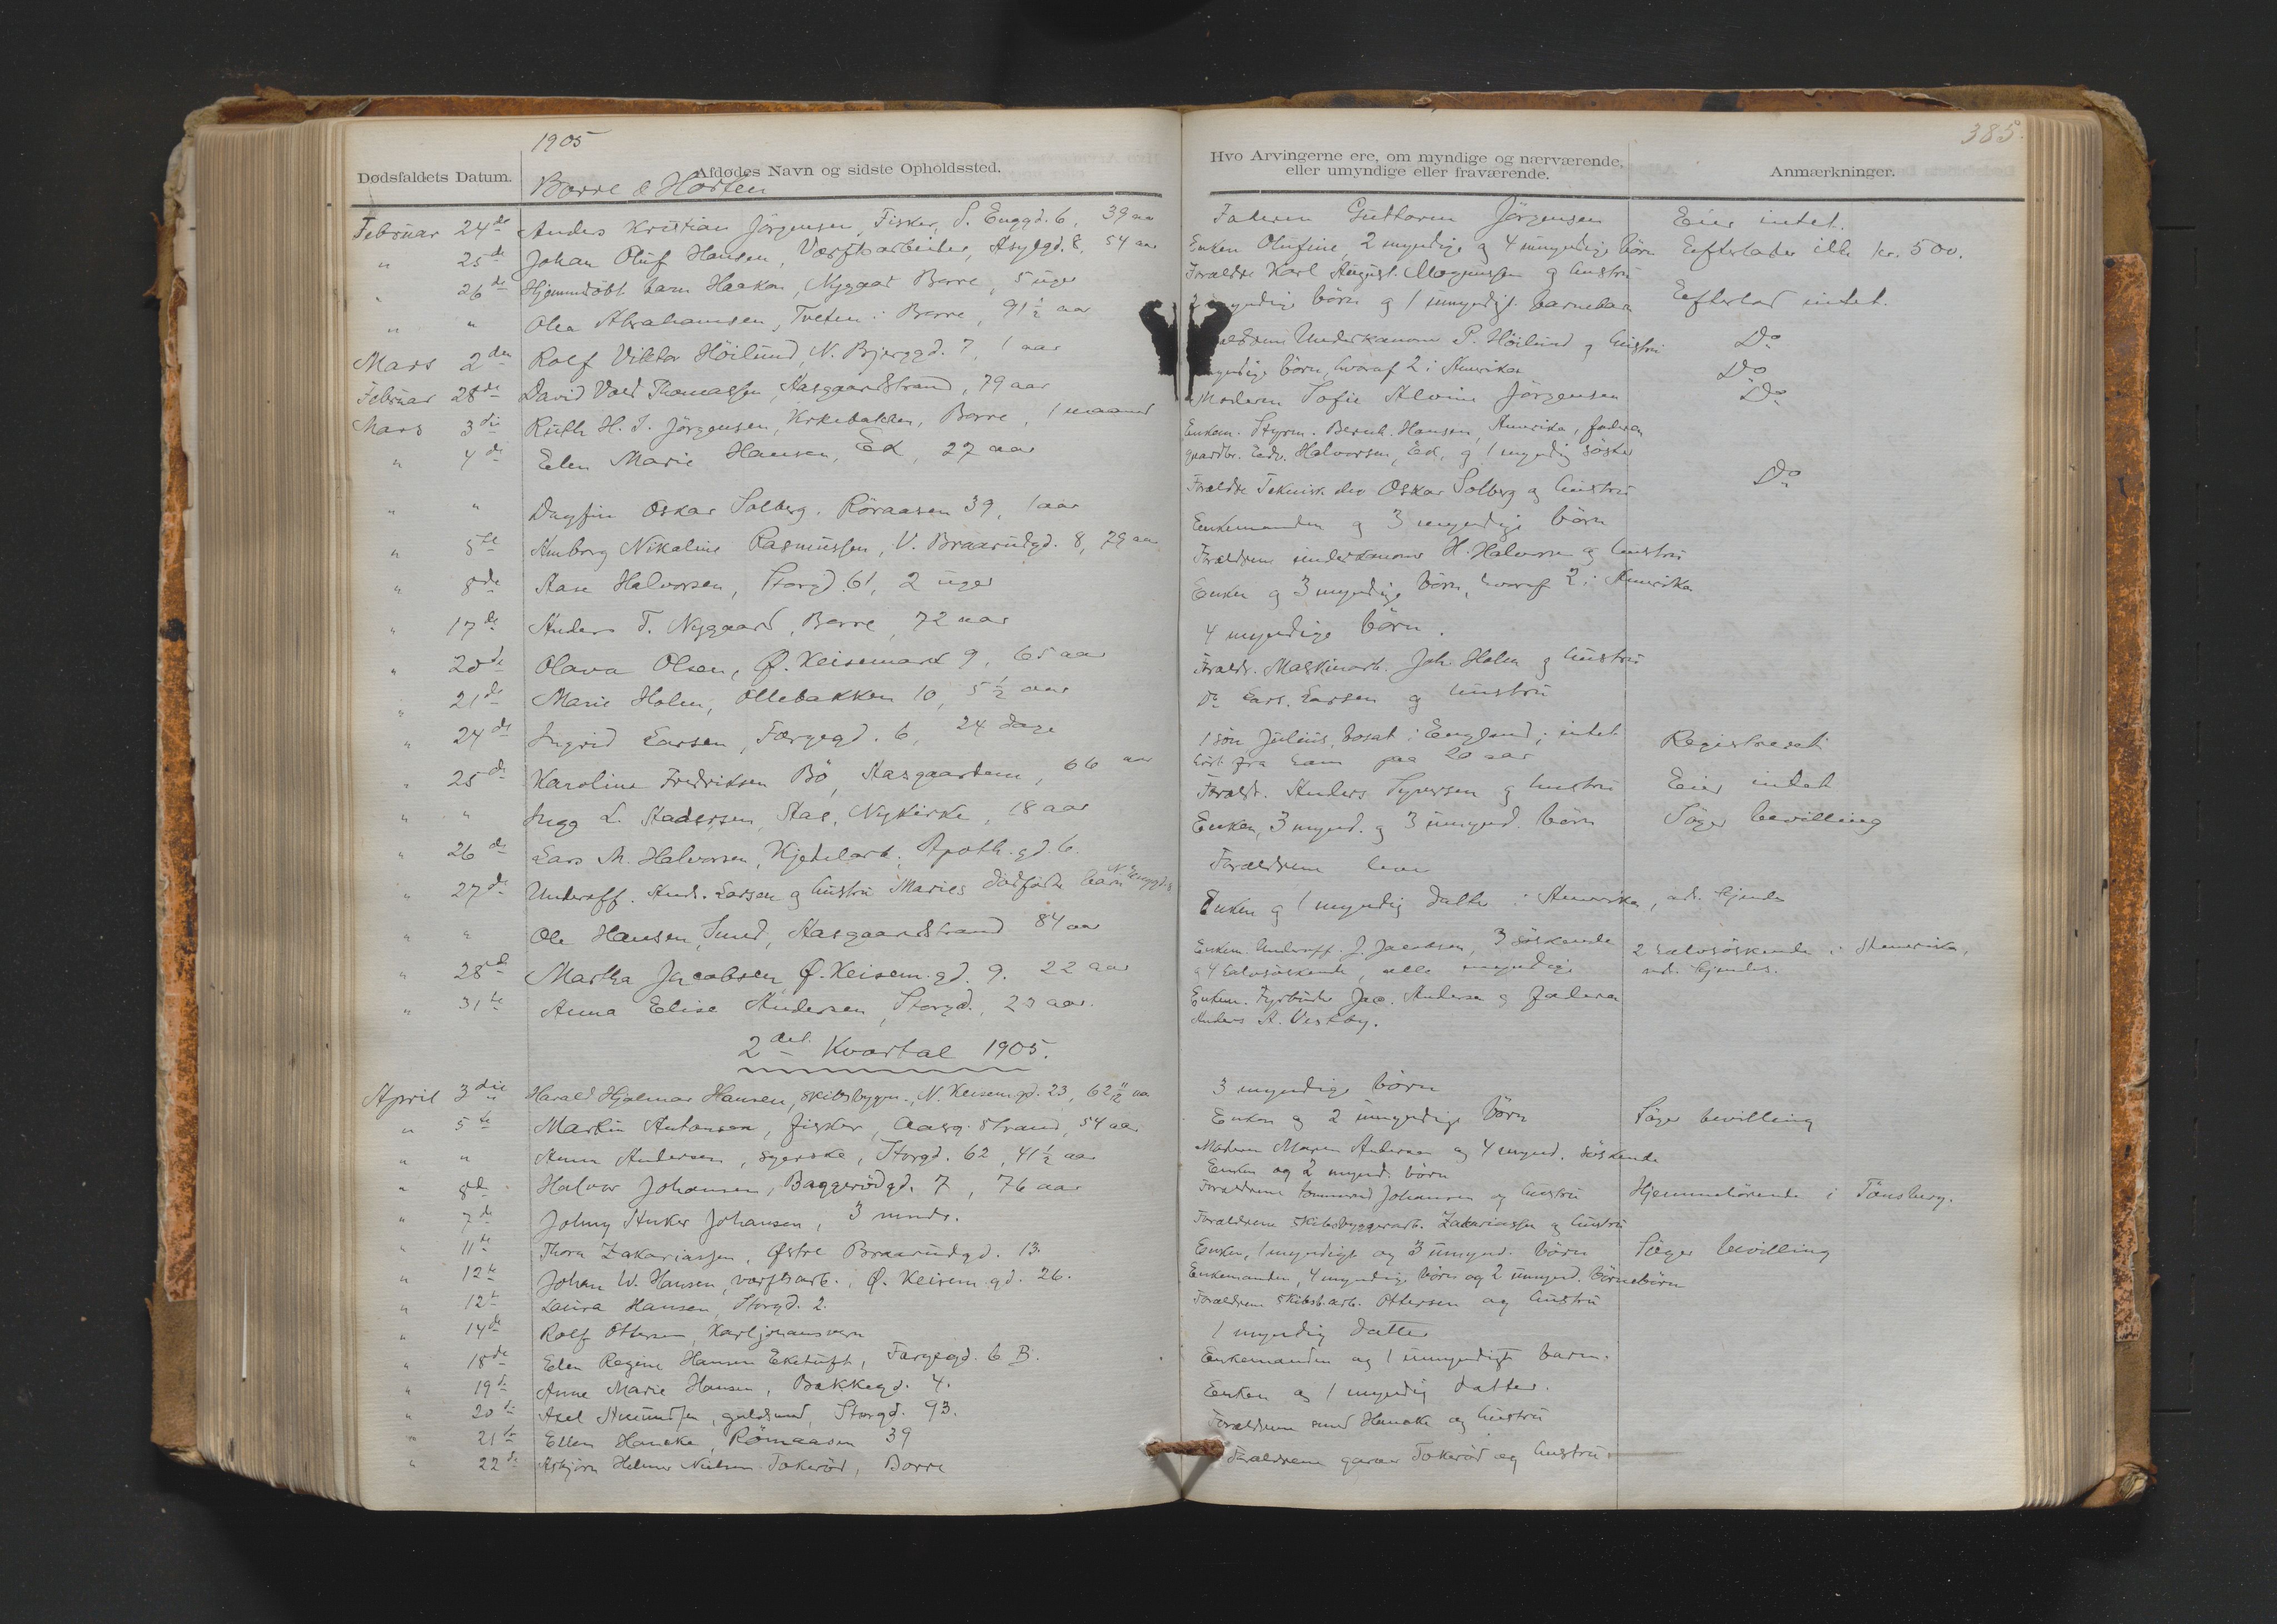 1905
Dødsfaldets Datum.
Afdødes Navn og sidste Opholdssted.
Borre & Horten
Februar 24de Anders Kristian Jörgensen, Fisker, S. Enggd. 6, 39 aar
" 25de Johan Oluf Hansen, Værftsarbeider, Asylgd. 8, 54 aar
" 26de Hjemmedöbt barn Haakon, Nygaar Borre, 5 uger
" " Olea Abrahamsen, Tveten i Borre, 91½ aar
Mars 2den Rolf Viktor Höilund, N. Bjerggd. 7, 1 aar
Februar 28de David Vold Thomassen, Aasgaardstrand, 79 aar
Mars 3die Ruth H. J. Jörgensen, Kirkebakken, Borre, 1 maaned
" 4de Elen Marie Hansen, Ek, 27 aar
" " Dagfin Oskar Solberg, Röraasen 39, 1 aar
" 5te Amborg Nikoline Rasmussen, V. Braarudgd. 8, 79 aar
" 8de Aase Halvorsen, Storgd. 61, 2 uger
" 17de Anders T. Nygaard, Borre, 72 aar
" 20de Olava Olsen, Ø. Keisemark 9, 65 aar
" 21de Marie Holm, Ollebakken 10, 5½ aar
" 24de Ingrid Larsen, Færgegd. 6, 24 dage
" 25de Karoline Fredriksen Bö, Aasgaarden, 66 aar
" " Inga L. Aadersen, Aas, Nykirke, 18 aar
" 26de Lars M. Halvorsen, Kjedelarb. Apoth.gd. 6.
" 27de Underoff. Ands. Larsen og hustru Maries dödfödte barn N. Enggd.
" " Ole Hansen, Smed, Aasgaardstrand 84 aar
" 28de Martha Jacobsen, Ø. Keisem.gd. 9. 22 aar
" 31te Anna Elise Andersen, Storgd., 23 aar.
2det Kvartal 1905.
April 3die Harald Hjalmar Hansen, skibsbyggm., N. Keisemgd. 23, 62 11/12 aar
" 5te Martin Antonsen, fisker, Aasg.strand, 54 aar
" " Anna Andersen, syerske, Storgd. 62, 41½ aar
" 8de Halvor Johansen, Baggerödgd. 7, 76 aar
" 7de Johny Anker Johansen, 3 mndr.
" 11te Thora Zakariassen, Østre Braarudgd. 13.
" 12te Johan W. Hansen, værftsarb., Ø. Keisem.gd. 26.
" 12te Laura Hansen, Storgd. 2.
" 14de Rolf Ottersen, Karljohansvern
" 18de Elen Regine Hansen Eketuft, Færgegd. 6 B.
" 19de Anne Marie Hansen, Bakkegd. 4.
" 20de Axel Amundsen, guldsmed, Storgd. 93.
" 21de Ellen Hancke, Römaasen 39
" 22de Asbjörn Helmer Nielsen Tokeröd, Borre
385.
Hvo Arvingerne ere, om myndige og nærværende, eller umyndige eller fraværende.
Anmærkninger.
Faderen Guttorm Jörgensen Eier intet.
Enken Olufine, 2 myndige og 4 umyndige börn Efterlader ca kr. 500.
Forældre Karl August Magnussen og hustru
2 myndige börn og 1 umyndigt barnebarn Efterlod intet.
Forældrene Underkanonr P. Höilund og hustru Do
myndige börn, hvoraf 2 i Amerika Do
Moderen Sofie Alvine Jörgensen Do
Enkem. Styrm. Bernh. Hansen, Amerika, faderen
gaardbr. Edv. Halvorsen, Ek, og 1 myndig söster
Forældre Teknisk elev Oskar Solberg og hustru Do
Enkemanden og 3 myndige börn
Forældrene underkanonr H. Halvorsen og hustru
Enken og 3 myndige börn, hvoraf 2 i Amerika
4 myndige börn.
Forældr. Maskinarb. Joh. Holm og hustru
Do Lars. Larsen og hustru
1 sön Julius, bosat i England; intet Registreret
hört fra ham paa 20 aar
Forældr. Anders Syversen og hustru Eier intet
Enken, 3 mynd. og 3 umynd. börn Söger bevilling
Forældrene lever
Enken og 1 myndig datter i Amerika, adr. kjendes
Enkem. Underoff. J. Jacobsen, 3 söskende 2 halvsöskende i Amerika,
og 4 halvsöskende, alle myndige adr. kjendes.
Enkem. Fyrböder Jac. Andersen og faderen
Anders A. Vestby.
3 myndige börn
Enken og 2 umyndige börn Söger bevilling
Moderen Maren Andersen og 4 mynd. söskende
Enken og 2 mynd. börn
Forældrene tömmermd Johansen og hustru Hjemmehörende i Tönsberg.
Forældrene skibsbyggerarb. Zakariassen og hustru
Enken, 1 myndigt og 3 umynd. börn Söger bevilling
Enkemanden, 4 myndige börn og 2 umynd. börnebörn
Forældrene skibsb.arb. Ottersen og hustru
1 myndig datter
Enkemanden og 1 umyndigt barn.
Enken og 1 myndig datter.
Forældrene smed Hancke og hustru
Forældrene garver Tokeröd og hustru